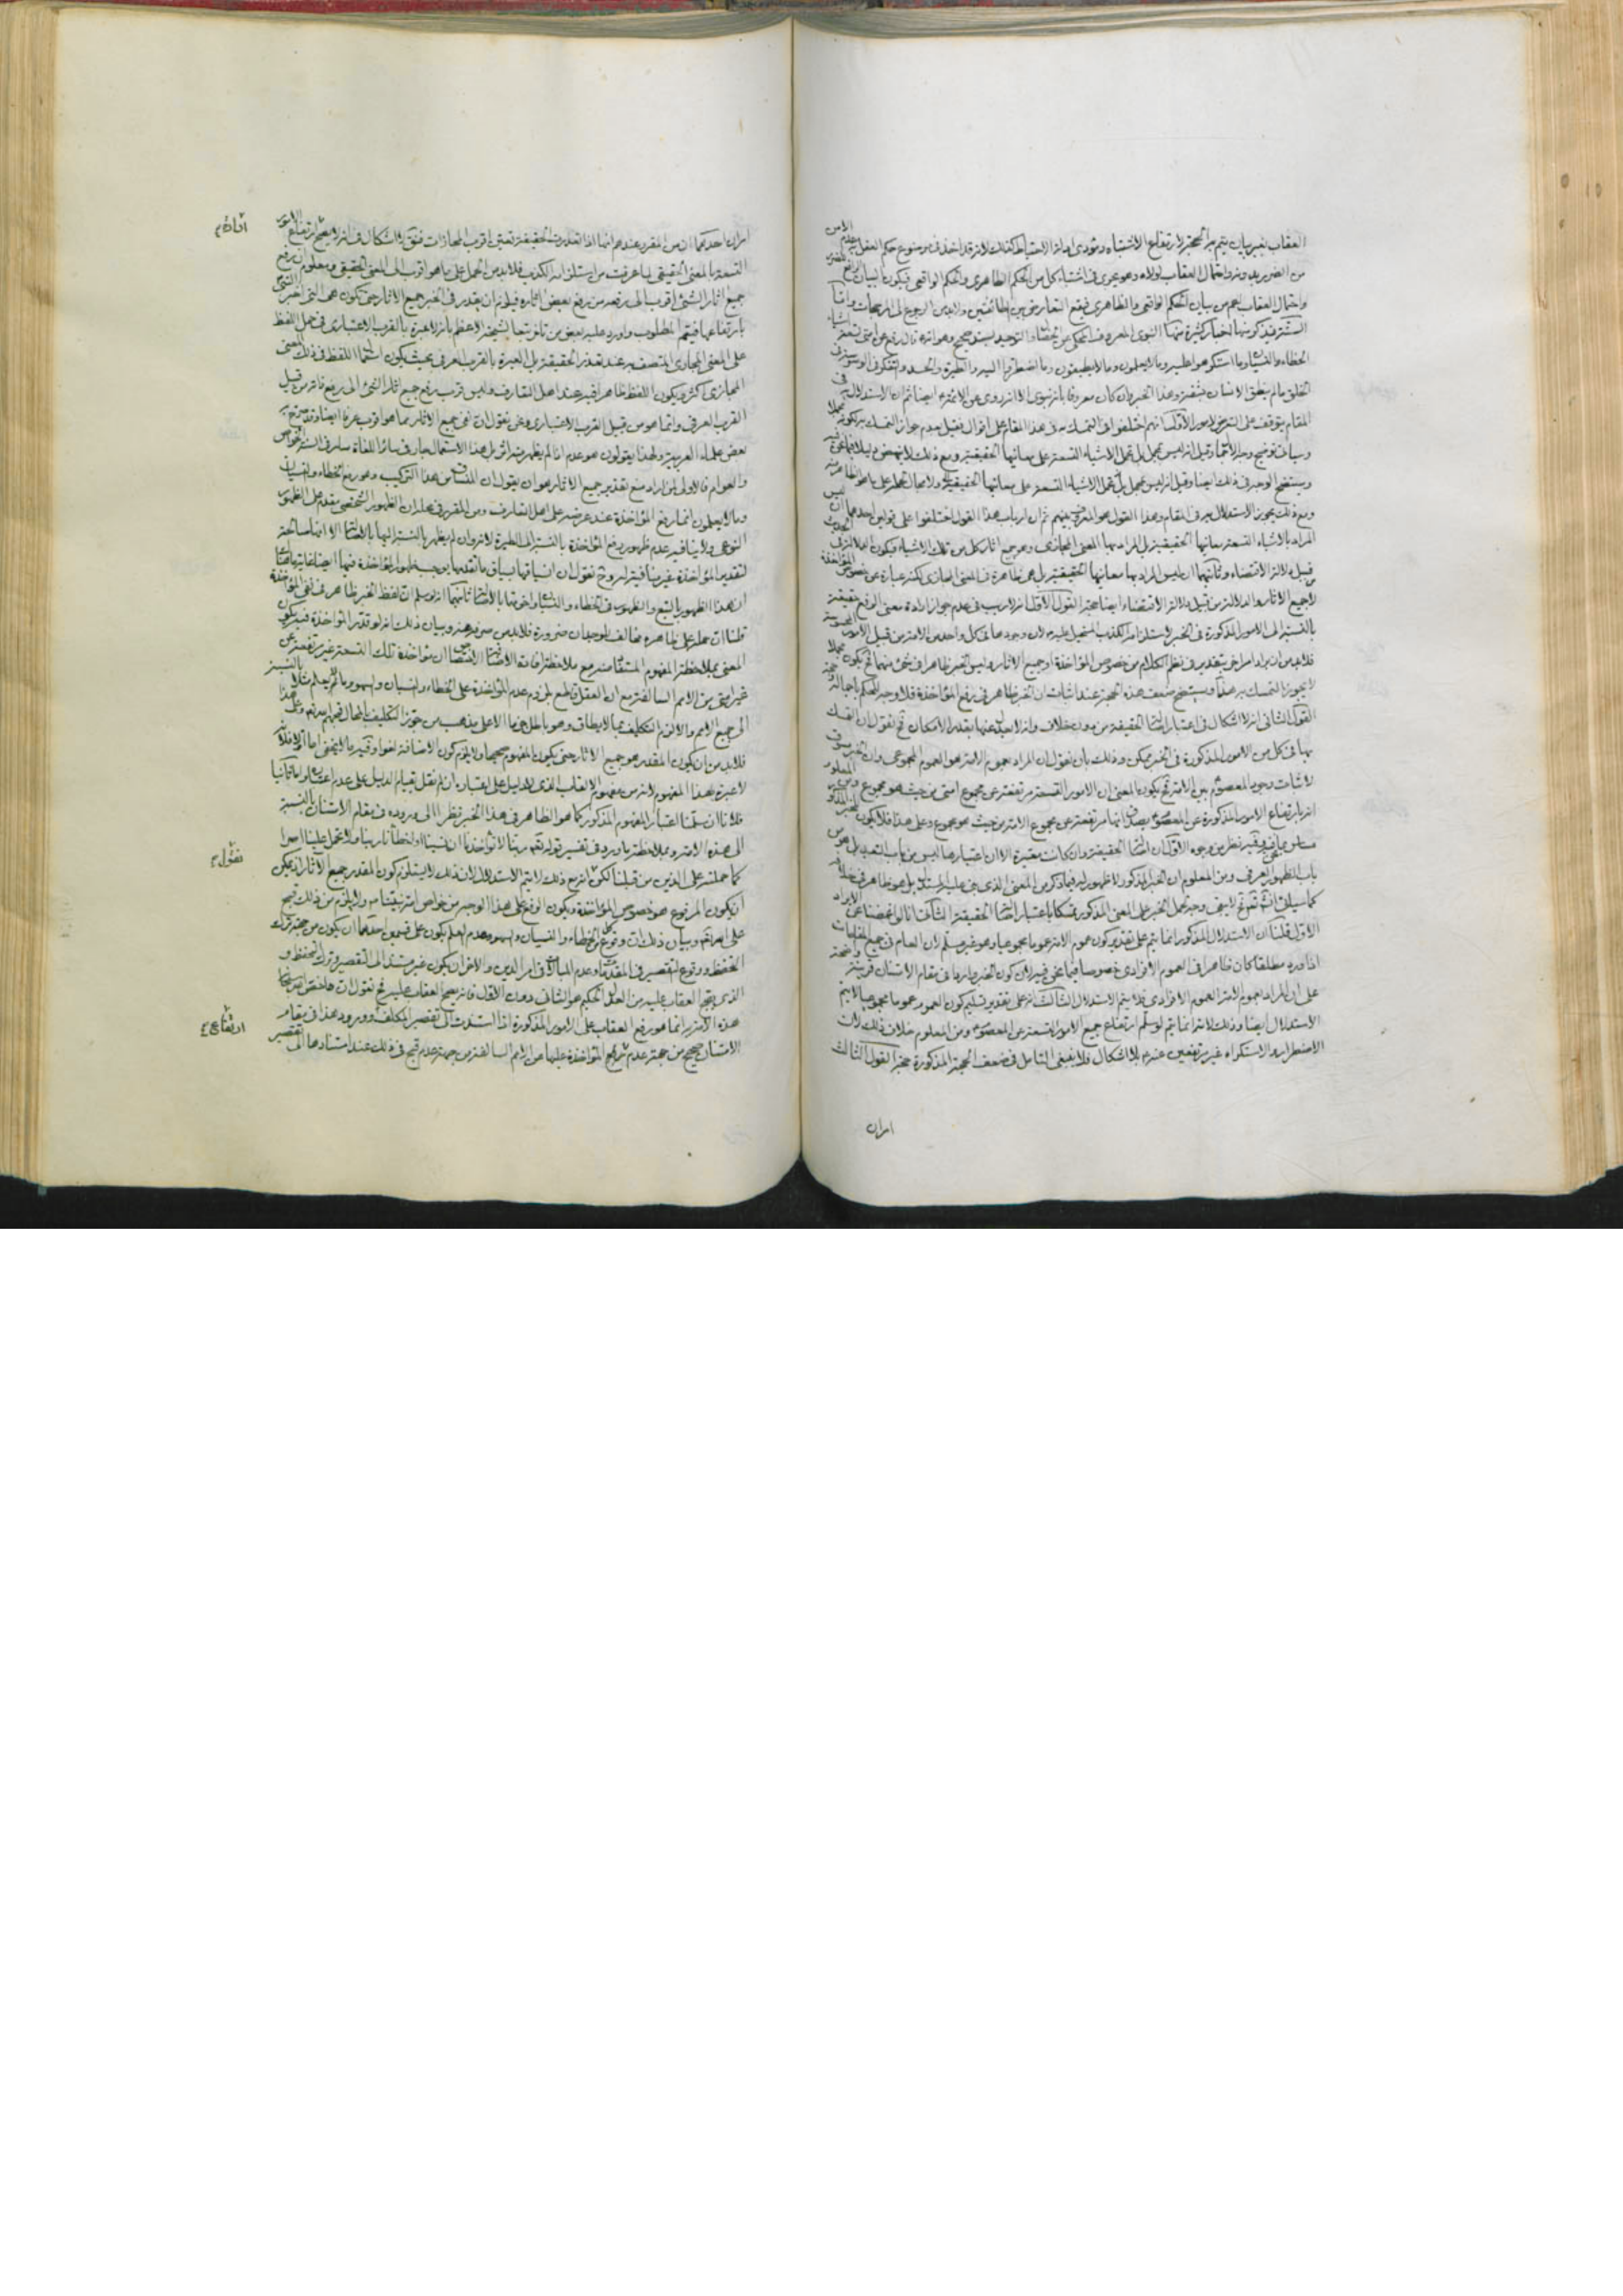 العقاب بغير بيان يتم به الحجة لارتفاع الاشتباه ومؤدى ادلة الاحتياط كذلك لانه قد اخذ في موضوع حكم العقل
من الضرر يد ورود احتمال العقاب لولاه وهو يجرى في اشتباه كل من الحكم الظاهرى والحكم الواقعى فيكون البيان
واحتمال العقاب اعم من بيان الحكم الواقعى والظاهرى فيقع التعارض بين الطائفتين ولابد من الرجوع الى المرجحات واما
السنة فنذكر منها اخبار كثيرة منها النبوى المعروف المحكى عن الخصال والتوحيد بسند صحيح وهو انه قال رفع عن امتى تسعة
الخطاء والنسيان وما استكرهوا عليه وما لا يعلمون وما لا يطيقون وما اضطروا اليه والطيرة والحسد والتفكر في الوسوسة في
الخلق ما لم ينطق الانسان بشفته وهذا الخبر وان كان معروفا بانه نبوى الا انه روى عن الائمة ايضا ثم ان الاستدلال به في
المقام يتوقف على التعرض لامور الاول انهم اختلفوا في التمسك به في هذا المقام على اقوال فقيل بعدم جواز التمسك به لكونه مجملا
وسياتى توضيح وجه الاجمال وقيل انه ليس بمجمل بل تحمل الاشياء التسعة على معانيها الحقيقية ومع ذلك لا ينهض دليلا
وسيتضح الوجه في ذلك ايضا وقيل انه ليس بمجمل بل تحمل الاشياء التسعة على معانيها الحقيقية ولا مجال لحمله على ما هو الظاهر منه
ومع ذلك يجوز الاستدلال به في المقام وهذا القول هو المعروف بينهم ثم ان ارباب هذا القول اختلفوا على قولين احدهما ان ليس
المراد بالاشياء التسعة معانيها الحقيقية بل المراد بها المعنى المجازى وهو جميع اثار كل من تلك الاشياء فيكون
قبيل دلالة الاقتضاء وثانيهما ان ليس المراد بها معانيها الحقيقية بل هى ظاهرة في المعنى المجازى لكنه عبارة عن خصوص المؤاخذة
لا جميع الاثار والدلالة من قبيل دلالة الاقتضاء ايضا حجة القول الاول انه لا ريب في عدم جواز ارادة معنى الرفع حقيقة
بالنسبة الى الامور المذكورة في الخبر لاستلزامه الكذب المستحيل عليه لان وجودها في كل واحد من الامة من قبيل الامور المحسوسة
فلا بد من ان يراد امر اخر بتقديره في نظم الكلام من خصوص المؤاخذة او جميع الاثار وليس الخبر ظاهرا في شئ منهما فح يكون مجملا
لا يجوز التمسك به هذا وسيتضح ضعف هذه الحجة عند اثبات ان الخبر ظاهر في رفع المؤاخذة فلا وجه للحكم باجماله حجة
القول الثانى انه لا اشكال في اعتبار اصالة الحقيقة من دون خلاف وانه لا يعدل عنها بقدر الامكان فح نقول ان التمسك
بها في كل من الامور المذكورة في الخبر ممكن وذلك بان نقول ان المراد بعموم الامة هو العموم المجموعى وان الخبر مسوق
لاثبات وجود المعصوم بين الامة فح يكون المعنى ان الامور التسعة مرتفعة عن مجموع امتى من حيث هو مجموع ومن المعلوم
انه بارتفاع الامور المذكورة عن المعصوم يصدق انها مرتفعة عن مجموع الامة من حيث هو مجموع وعلى هذا فلا يكون الخبر المذكور
باب الظهور العرفى ومن المعلوم ان الخبر المذكور لا ظهور له فيما ذكر من المعنى الذى بنى عليه المستدل بل هو ظاهر في خلافه
كما سياتى انشاء الله تعالى فح لا يبقى وجه لحمل الخبر على المعنى المذكور تمسكا باعتبار اصالة الحقيقة الثانى انا لو اغمضنا عن الايراد
الاول قلنا ان الاستدلال المذكور انما يتم على تقدير كون عموم الامة عموما مجموعيا وهو غير مسلم لان العام في جميع المقامات
اذا ورد مطلقا كان ظاهرا في العموم الافرادى خصوصا فيما نحن فيه لان كون الخبر واردا في مقام الامتنان قرينة واضحة
على ان المراد بعموم الامة العموم الافرادى فلا يتم الاستدلال الثالث انه على تقدير تسليم كون العموم عموما مجموعيا لا يتم
الاستدلال ايضا وذلك لانه انما يتم لو سلم ارتفاع جميع الامور التسعة عن المعصوم ومن المعلوم خلاف ذلك لان
الاضطرار والاستكراه غير مرتفعين عنه بلا اشكال فلا ينبغى التامل في ضعف الحجة المذكورة حجة القول الثالث
امران
امران احدهما ان من المقرر عندهم انها اذا تعذرت الحقيقة تعين اقرب المجازات فنقول لا اشكال في انه لا يصح ارتفاع الامور
التسعة بالمعنى الحقيقى لما عرفت من استلزامه الكذب فلا بد من الحمل على ما هو اقرب الى المعنى الحقيقى ومعلوم ان رفع
جميع اثار الشئ اقرب الى رفعه من رفع بعض اثاره فيلزم ان يقدر في الخبر جميع الاثار حتى تكون هى التى اخبر
بارتفاعها فيتم المطلوب واورد عليه بعض من تاخر تبعا لشيخه الاعظم بانه لا عبرة بالقرب الاعتبارى في حمل اللفظ
على المعنى المجازى المتصف به عند تعذر الحقيقة بل العبرة بالقرب العرفى بحيث يكون استعمال اللفظ في ذلك المعنى
المجازى اكثر ويكون اللفظ ظاهرا فيه عند اهل التعارف وليس قرب رفع جميع اثار الشئ الى رفع ذاته من قبيل
القرب العرفى وانما هو من قبيل القرب الاعتبارى ونحن نقول ان نفى جميع الاثار مما هو اقرب عرفا ايضا وقد صرح به
بعض علماء العربية ولهذا يقولون هو عدم اذا لم يظهر منه اثر بل هذا الاستعمال جار في سائر اللغات سار في السنة الخواص
والعوام فالاولى لمن اراد منع تقدير جميع الاثار هو ان يقول ان المنساق من هذا التركيب وهو رفع الخطاء والنسيان
وما لا يعلمون انما رفع المؤاخذة عند عرضه على اهل التعارف ومن المقرر في محله ان الظهور الشخصى مقدم على الظهور
النوعى ولا ينافيه عدم ظهور رفع المؤاخذة بالنسبة الى الطيرة لانه وان لم يظهر بالنسبة اليها بالاصالة الا انها صالحة
لتقدير المؤاخذة غير منافية له وح نقول ان انسياقها بسياق ما تقدمها يوجب ظهور المؤاخذة فيها ايضا غايتها
ان هذا الظهور بالتبع والظهور في الخطاء والنسيان واخوتها بالاصالة ثانيهما انه لو سلم ان لفظ الخبر ظاهر في نفى المؤاخذة
قلنا ان حمله على ظاهره مخالف للوجدان ضرورة فلا بد من صرفه عنه وبيان ذلك انه لو قدر المؤاخذة فيه يكون
المعنى بملاحظة المفهوم المستفاد منه مع ملاحظة افادة الاضافة الاختصاص ان مؤاخذة تلك التسعة غير مرتفعة عن
غير امتى من الامم السالفة مع ان العقل قاطع بلزوم عدم المؤاخذة على الخطاء والنسيان والسهو وما لم يعلم مثلا بالنسبة
الى جميع الامم والا لزم التكليف بما لا يطاق وهو باطل جزما الا على مذهب من جوز التكليف بالمحال
فلا بد من ان يكون المقدر هو جميع الاثار حتى يكون المفهوم صحيحا ولا يلزم كون الاضافة لغوا وفيه ما لا يخفى اما اولا فلانه
لا عبرة بهذا المفهوم لانه من مفهوم اللقب الذى لا دليل على اعتباره ان لم نقل بقيام الدليل على عدم اعتباره واما ثانيا
فلانا ان سلمنا اعتبار المفهوم المذكور كما هو الظاهر في هذا الخبر نظرا الى وروده في مقام الامتنان بالنسبة
الى هذه الامة وبملاحظة ما ورد في تفسير قوله تعالى ربنا لا تؤاخذنا ان نسينا او اخطأنا ربنا ولا تحمل علينا اصرا
كما حملته على الذين من قبلنا لكن نقول انه مع ذلك لا يتم الاستدلال لان ذلك لا يستلزم كون المقدر جميع الاثار اذ يمكن
ان يكون المرفوع هو خصوص المؤاخذة ويكون الرفع على هذا الوجه من خواص امة نبينا ص ولا يلزم من ذلك قبح
على الله تعالى وبيان ذلك ان وقوع الخطاء والنسيان والسهو وعدم العلم يكون على قسمين احدهما ان يكون من جهة ترك
التحفظ ووقوع التقصير في المقدمات وعدم المبالات في امر الدين والاخر ان يكون غير مستند الى التقصير وترك التحفظ و
الذى يقبح العقاب عليه من العدل الحكيم هو الثانى دون الاول فانه يصح العقاب عليه فح نقول ان ما اختص
هذه الامة انما هو رفع العقاب على الامور المذكورة اذا استندت الى تقصير المكلف وورود هذا في مقام
الامتنان صحيح من جهة عدم ارتفاع المؤاخذة عليها عن الامم السالفة من جهة عدم قبح في ذلك عند استنادها الى التقصير
نقول
ارتفاع